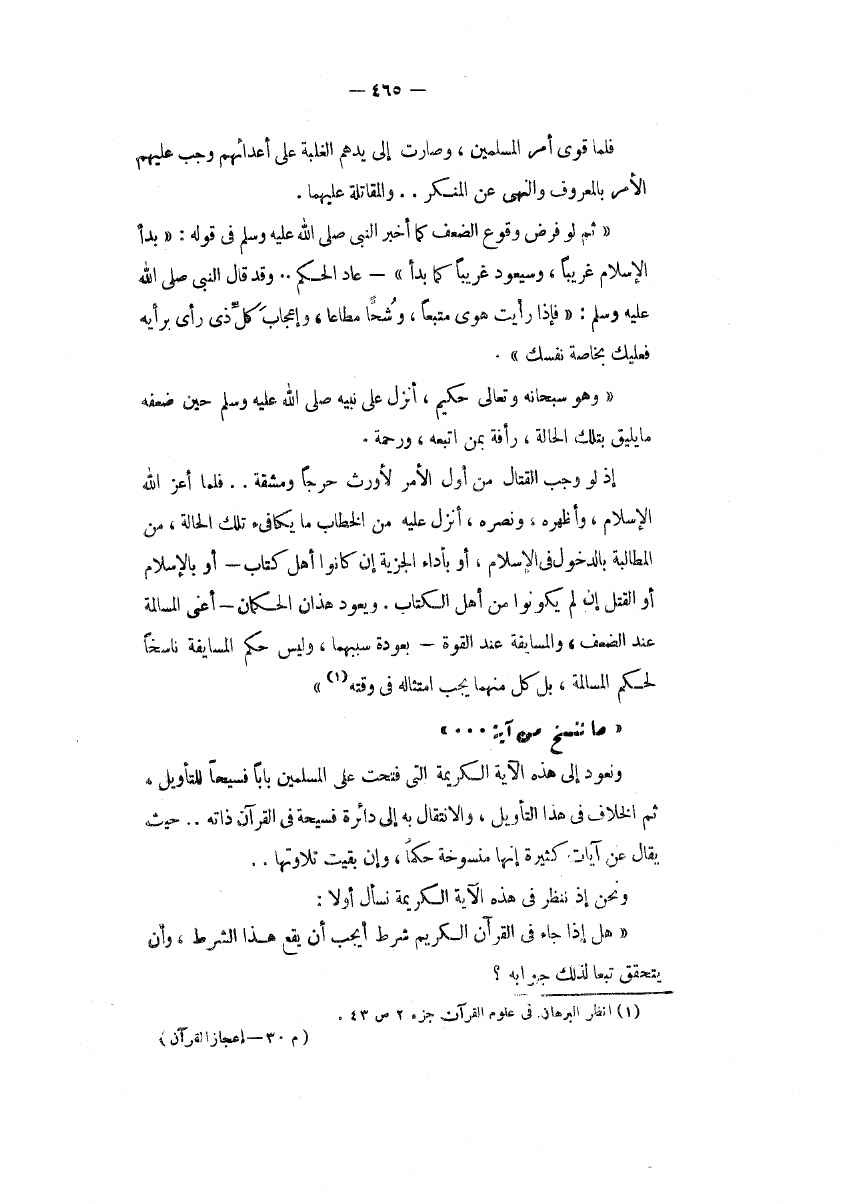 — ٤٦٥ —
فلما قوى أمر المسلمين ، وصارت إلى يدهم الغلبة على أعدائهم وجب عليهم
الأمر بالمعروف والنهى عن المنكر . . والمقاتلة عليهما .
« ثم لو فرض وقوع الضعف كما أخبر النبي صلى الله عليه وسلم فى قوله : « بدأ
الإسلام غريباً ، وسيعود غريباً كما بدأ » — عاد الحكم .. وقد قال النبي صلى الله
عليه وسلم : « فإذا رأيت هوى متبعاً ، وشُحًّا مطاعا ، وإعجابَ كلِّ ذى رأى برأيه
فعليك بخاصة نفسك » .
« وهو سبحانه وتعالى حكيم ، أنزل على نبيه صلى الله عليه وسلم حين ضعفه
مايليق بتلك الحالة ، رأفة بمن اتبعه ، ورحمة .
إذ لو وجب القتال من أول الأمر لأورث حرجاً ومشقة . . فلما أعز الله
الإسلام ، وأظهره ، ونصره ، أنزل عليه من الخطاب ما يكافىء تلك الحالة ، من
المطالبة بالدخول فى الإسلام ، أو بأداء الجزية إن كانوا أهل كتاب — أو بالإسلام
أو القتل إن لم يكونوا من أهل الكتاب . ويعود هذان الحكمان — أعنى المسالمة
عند الضعف ، والمسايفة عند القوة — بعودة سببهما ، وليس حكم المسايفة ناسخاً
لحكم المسالمة ، بل كل منهما يجب امتثاله فى وقته (١) »
« ما ننسخ من آية . . . »
ونعود إلى هذه الآية الكريمة التى فتحت على المسلمين باباً فسيحاً للتأويل ،
ثم الخلاف فى هذا التأويل ، والانتقال به إلى دائرة فسيحة فى القرآن ذاته .. حيث
يقال عن آيات كثيرة إنها منسوخة حكماً ، وإن بقيت تلاوتها . .
ونحن إذ ننظر فى هذه الآية الكريمة نسأل أولا :
« هل إذا جاء فى القرآن الكريم شرط أيجب أن يقع هذا الشرط ، وأن
يتحقق تبعا لذلك جوابه ؟
(١) انظر البرهان فى علوم القرآن جزء ٢ ص ٤٣ .
( م ٣٠ — إعجاز القرآن )